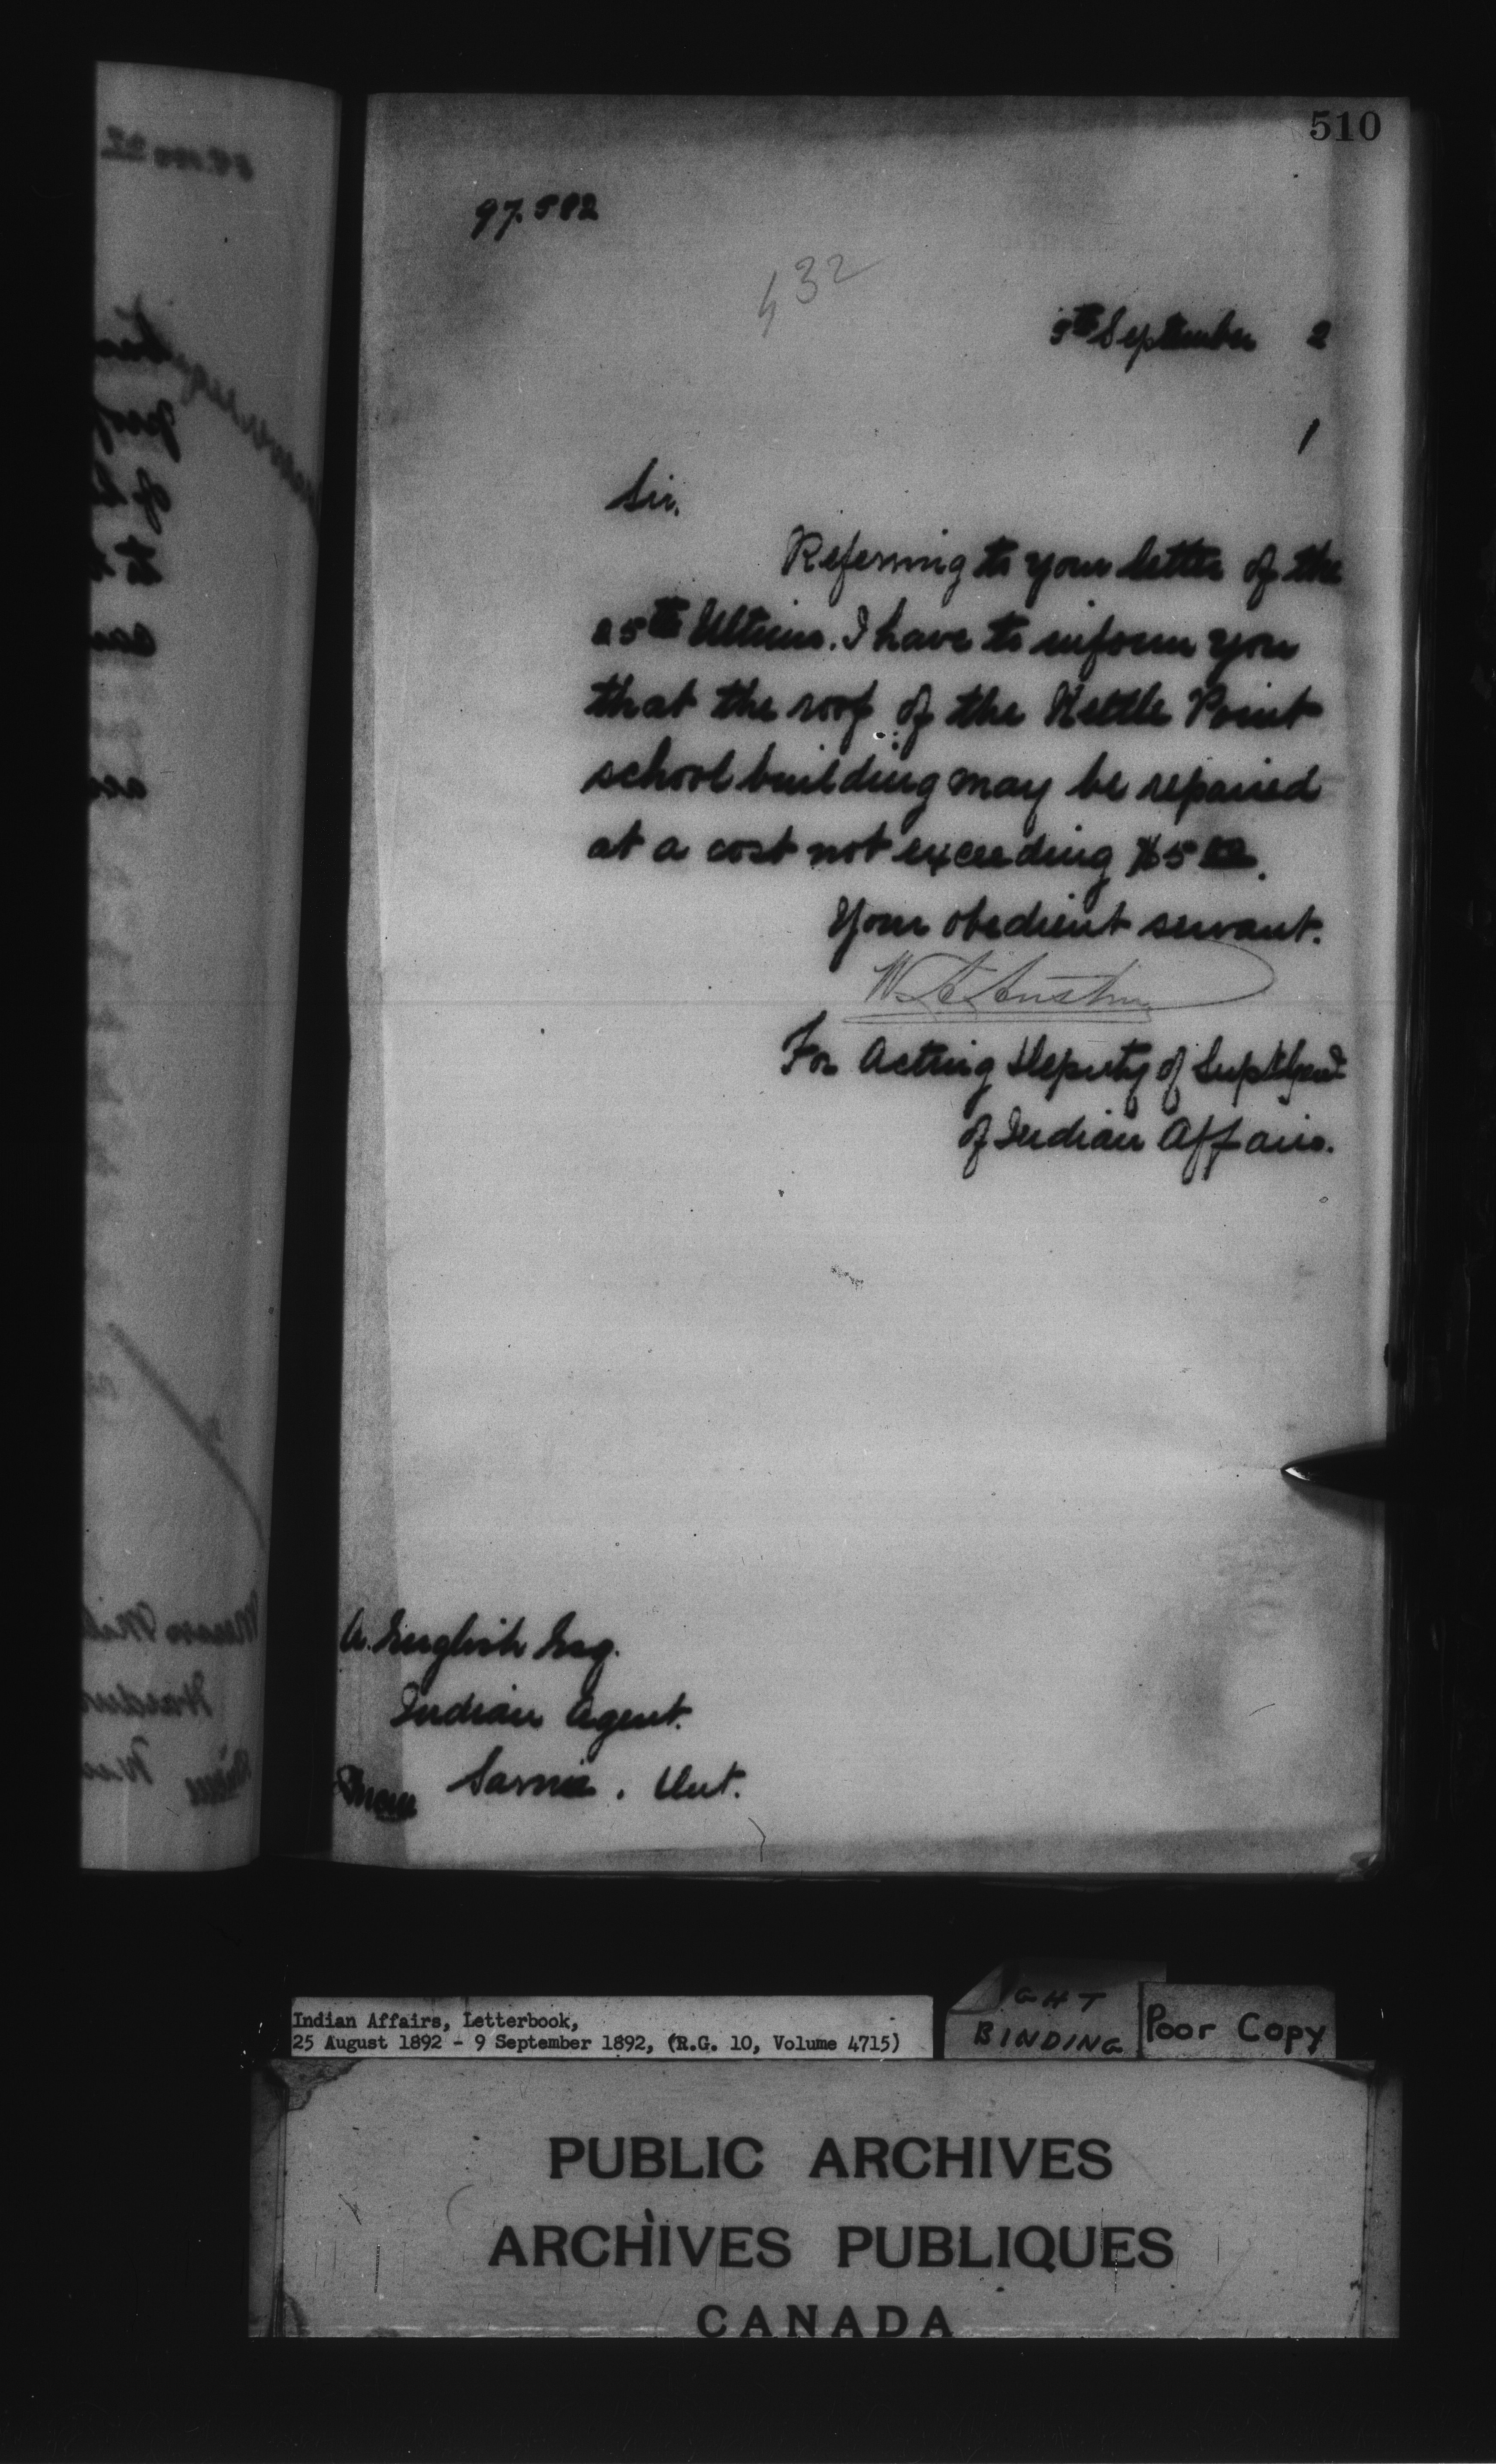 510
97.582
432
September 2
Sir.
Referring to your letter of the
25th Ultimo. I have to inform you
that the roof of the Kettle Point
school building may be repaired
at a cost not exceeding $5.00.
Your obedient servant.
W. A. Austin
For Acting Deputy of Supt Genl
of Indian Affairs.
A. English Esq.
Indian Agent.
Sarnia. Ont.
Indian Affairs, Letterbook,
25 August 1892 - 9 September 1892, (R.G. 10, Volume 4715)
GHT
BINDING
Poor Copy
PUBLIC ARCHIVES
ARCHIVES PUBLIQUES
CANADA